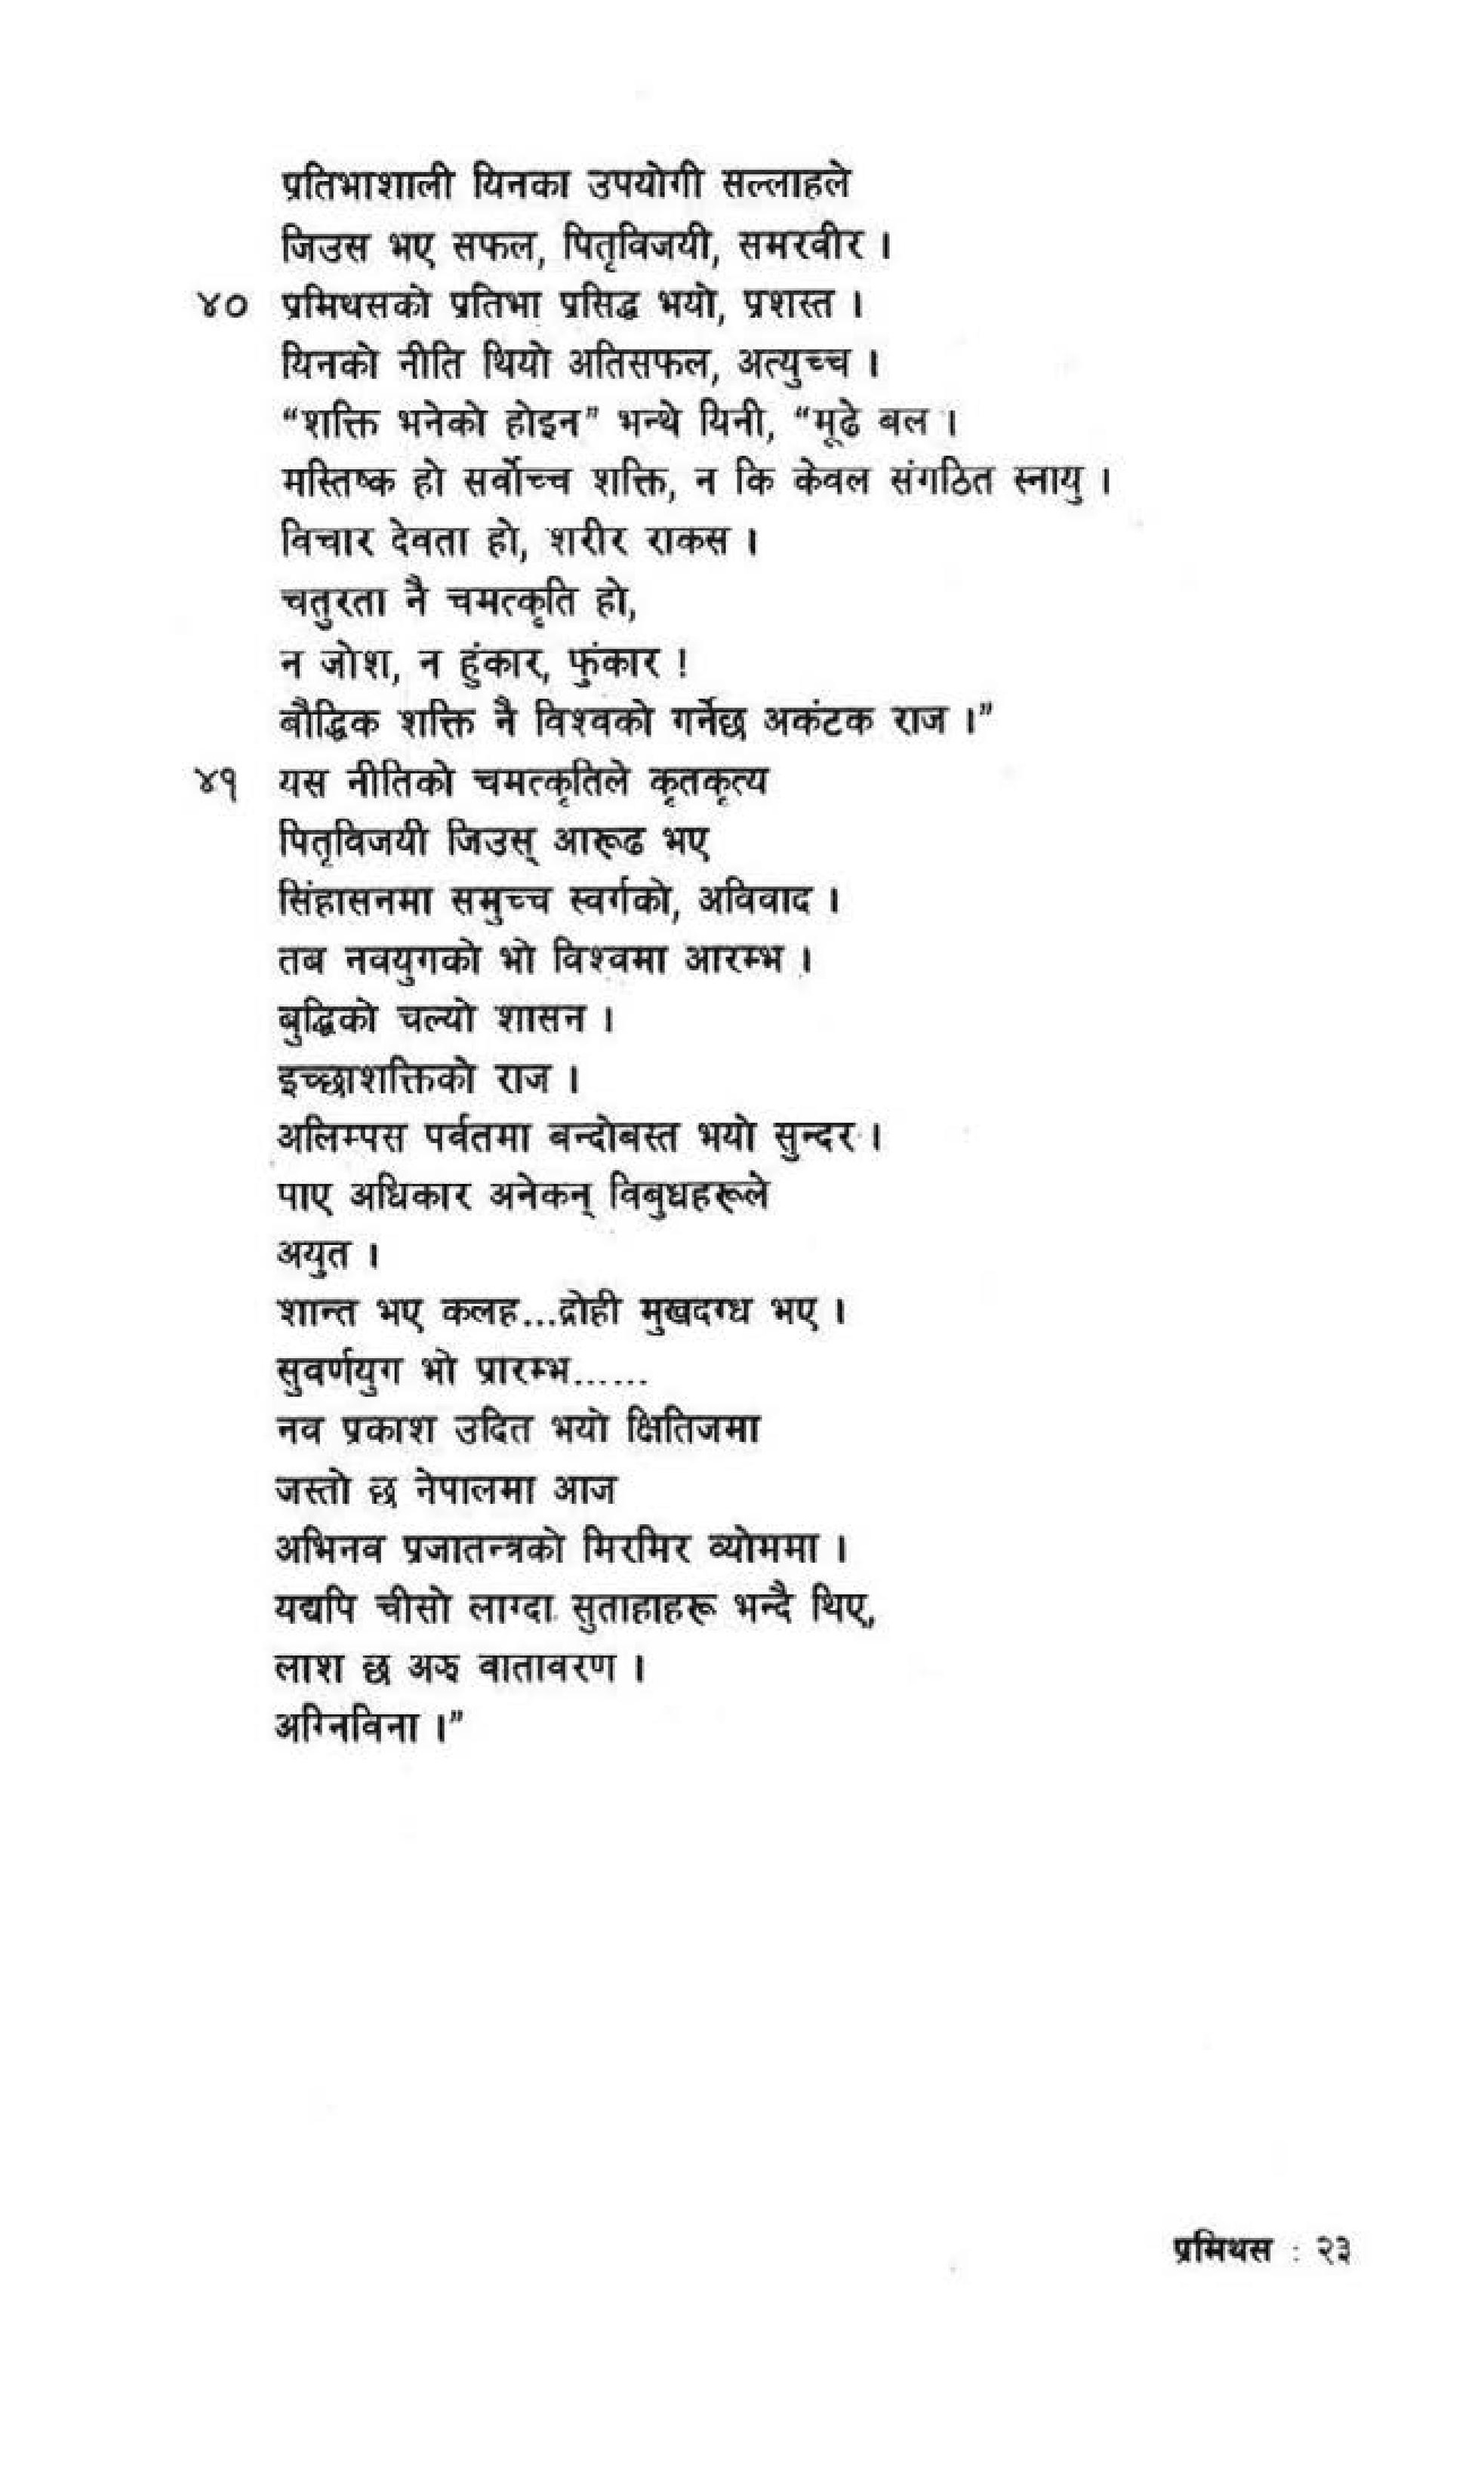 प्रतिभाशाली यिनका उपयोगी सल्लाहले
जिउस भए सफल, पितृविजयी, समरवीर ।
४० प्रमिथसको प्रतिभा प्रसिद्ध भयो, प्रशस्त ।
यिनको नीति थियो अतिसफल, अत्युच्च ।
“शक्ति भनेको होइन” भन्थे यिनी, “मूढे बल ।
मस्तिष्क हो सर्वोच्च शक्ति, न कि केवल संगठित स्नायु ।
विचार देवता हो, शरीर राकस ।
चतुरता नै चमत्कृति हो,
न जोश, न हुंकार, फुंकार !
बौद्धिक शक्ति नै विश्वको गर्नेछ अकंटक राज ।”
४१ यस नीतिको चमत्कृतिले कृतकृत्य
पितृविजयी जिउस् आरूढ भए
सिंहासनमा समुच्च स्वर्गको, अविवाद ।
तब नवयुगको भो विश्वमा आरम्भ ।
बुद्धिको चल्यो शासन ।
इच्छाशक्तिको राज ।
अलिम्पस पर्वतमा बन्दोबस्त भयो सुन्दर ।
पाए अधिकार अनेकन् विबुधहरूले
अयुत ।
शान्त भए कलह...द्रोही मुखदग्ध भए ।
सुवर्णयुग भो प्रारम्भ......
नव प्रकाश उदित भयो क्षितिजमा
जस्तो छ नेपालमा आज
अभिनव प्रजातन्त्रको मिरमिर व्योममा ।
यद्यपि चीसो लाग्दा सुताहाहरू भन्दै थिए,
लाश छ अझ वातावरण ।
अग्निविना ।”
प्रमिथस : २३